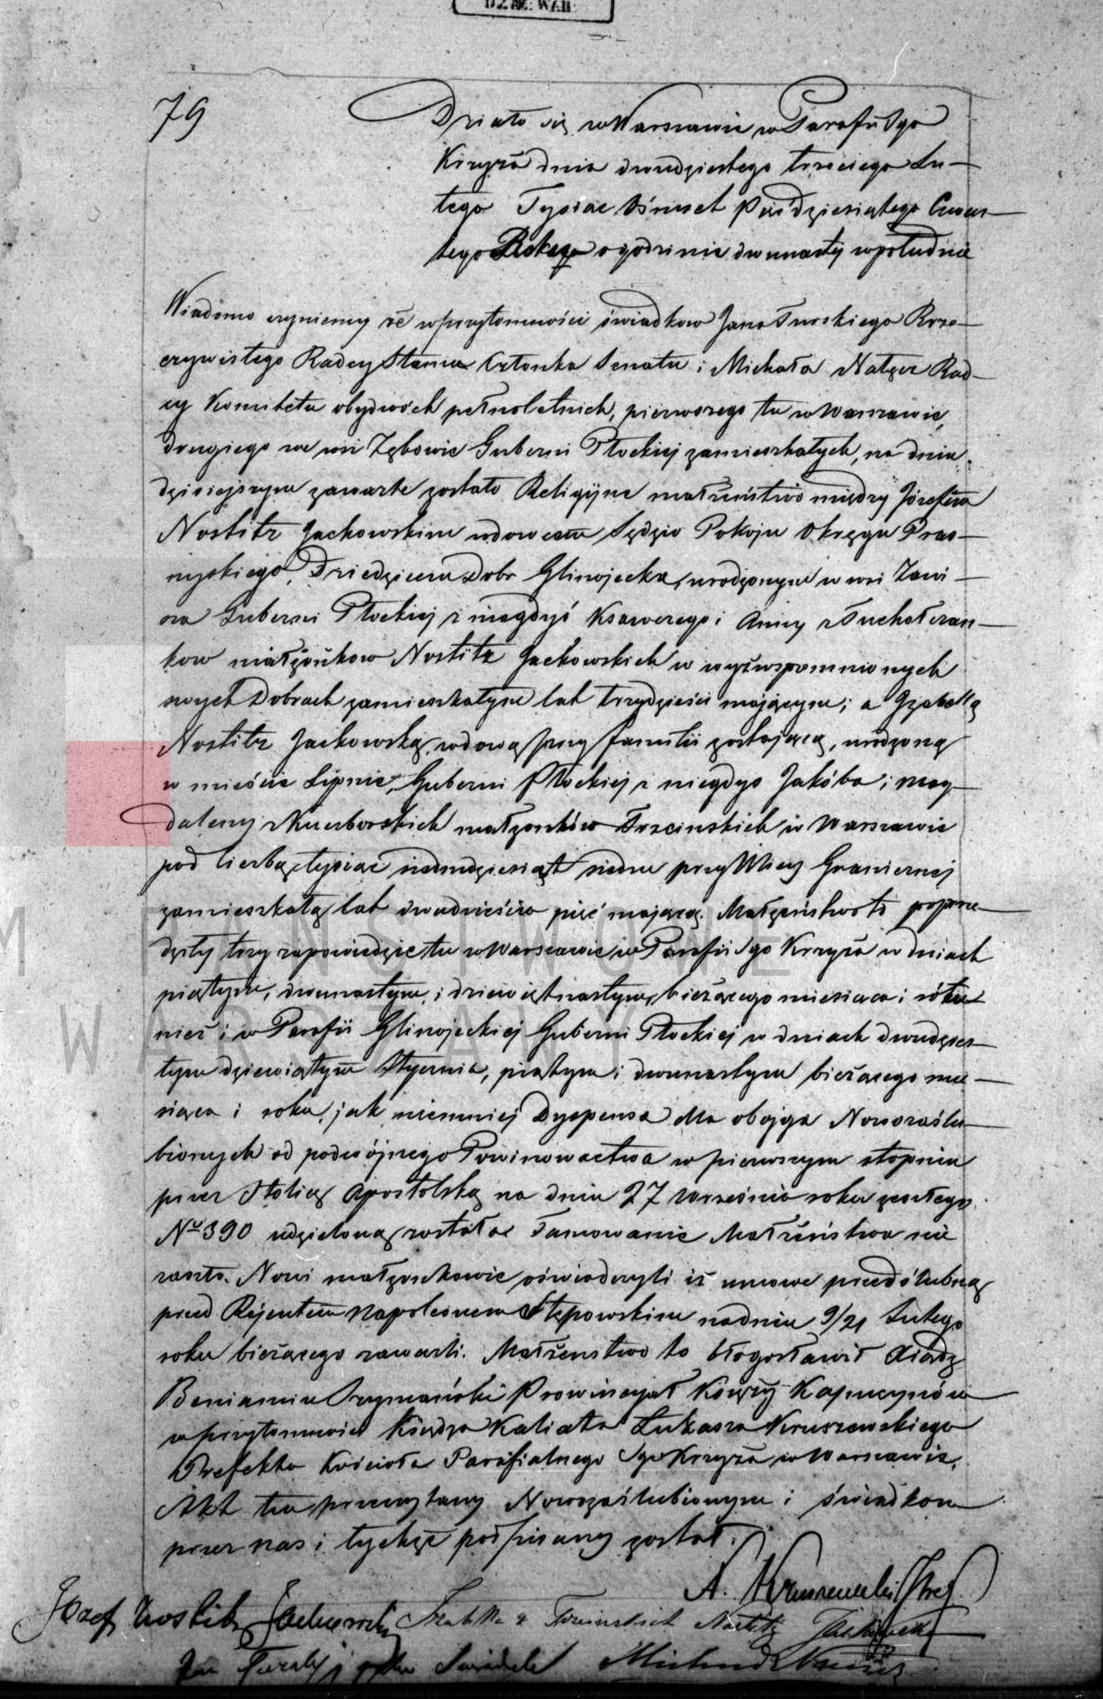 DZ.AK. WAR.
79
Działo się w Warszawie w Parafii Sgo
Krzyża dnia dwudziestego trzeciego Lu-
tego Tysiac Ośmset Pięćdziesiątego Czwar-
tego Roku o godzinie dwunasty w południe
Wiadomo czyniemy że w przytomności świadkow Jana Turskiego Rze-
czywistego Radcy Stanu Członka Senatu i Michała Nałęcz Rad-
cy Komitetu obydwóch pełnoletnich, pierwszego tu w Warszawie,
drugiego we wsi Zębowie Guberni Płockiej zamieszkałych, na dniu
dzisiejszym zawarte zostało Religijne małżeństwo między Józefem
Nostitz Jackowskim wdowcem Sędzią Pokoju Okręgu Pras-
nyskiego, Dziedzicem Dobr Glinojecka, urodzonym we wsi Zawi-
Guberni Płockiej z niegdyś Ksawerego i Anny z Sucholczan-
kow małżonkow Nostitz Jackowskich w wyżwspomnionych
swych Dobrach zamieszkałym lat trzydzieści mającym; a Izabellą
Nostitz Jackowską, wdową przy familii zostającą, urodzoną
w mieście Lipnie, Guberni Płockiej z niegdyś Jakóba i Mag-
daleny z małżonków Trzcinskich w Warszawie
pod liczbą tysiąc siedmdziesiąt siedm przy Ulicy Granicznej
zamieszkałą lat dwadzieścia pięć mającą. Małżeństwo to poprze-
dziły trzy zapowiedzie tu w Warszawie w Parafii Sgo Krzyża w dniach
piątym, dwunastym i dziewiętnastym bieżącego miesiaca i roku
nież i w Parafii Glinojeckiej Guberni Płockiej w dniach dwudzies-
tym dziewiątym Stycznia, piątym i dwunastym bieżącego mie-
siąca i roku, jak niemniej Dyspensa dla obojga Nowozaślu-
bionych od podwójnego Powinowactwa w pierwszym stopniu
przez Stolicę Apostolską na dniu 27 Września roku zeszłego
No 390 udzieloną została Tamowanie Małżeństwa nie
zaszło. Nowi małżonkowie oświadczyli iż umowę przedślubną
przed Rejentem Napoleonem Stępowskim na dniu 9/21 Lutego
roku bieżącego zawarli. Małżenstwo to błogosławił Xiądz
Beniamin Szymański Prowincyał Księży Kapucynów
w przytomności Księdza Łukasza Kruszewskiego
Prefekta Kościoła Parafialnego Sgo Krzyża w Warszawie.
Akt ten przeczytany Nowozaślubionym i świadkom
przez nas i tychże podpisany został.
A. Kruszewski
Józef Nostitz Jackowski Izabella z Trzcinskich Nostitz Jackowska
Jan Turski jako Swiadek Michał Nałęcz
M PAŃSTWOWE
WARSZAWY